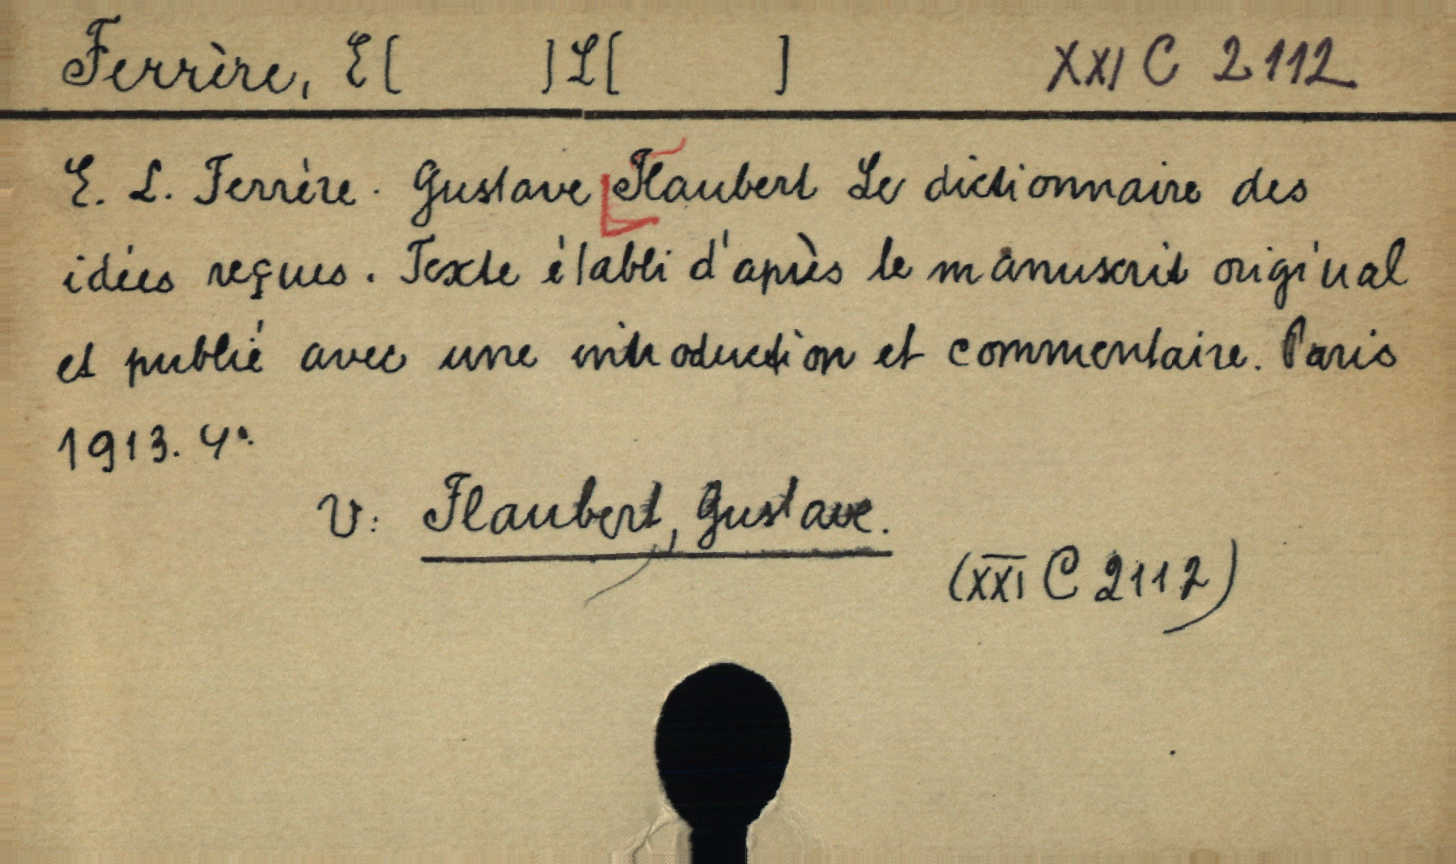 Ferrère, E[ ]L[ ] XXI C 2112
E. L. Ferrère. Gustave Flaubert Le dictionnaire des
idées reçues. Texte établi d'après le manuscrit original
et publié avec une introduction et commentaire. Paris
1913. 4°.
V: Flaubert, Gustave.
(XXI C 2112)